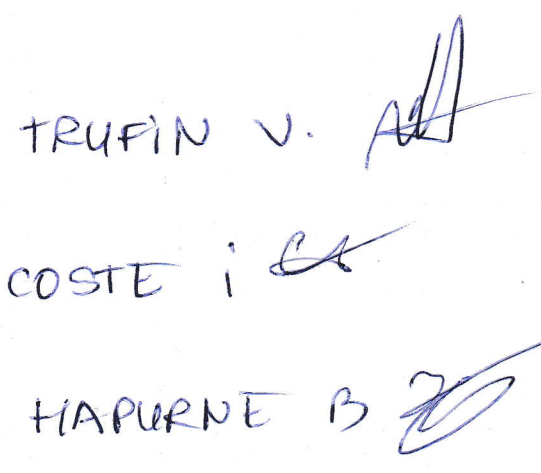 TRUFIN V.
COSTE i
HAPURNE B